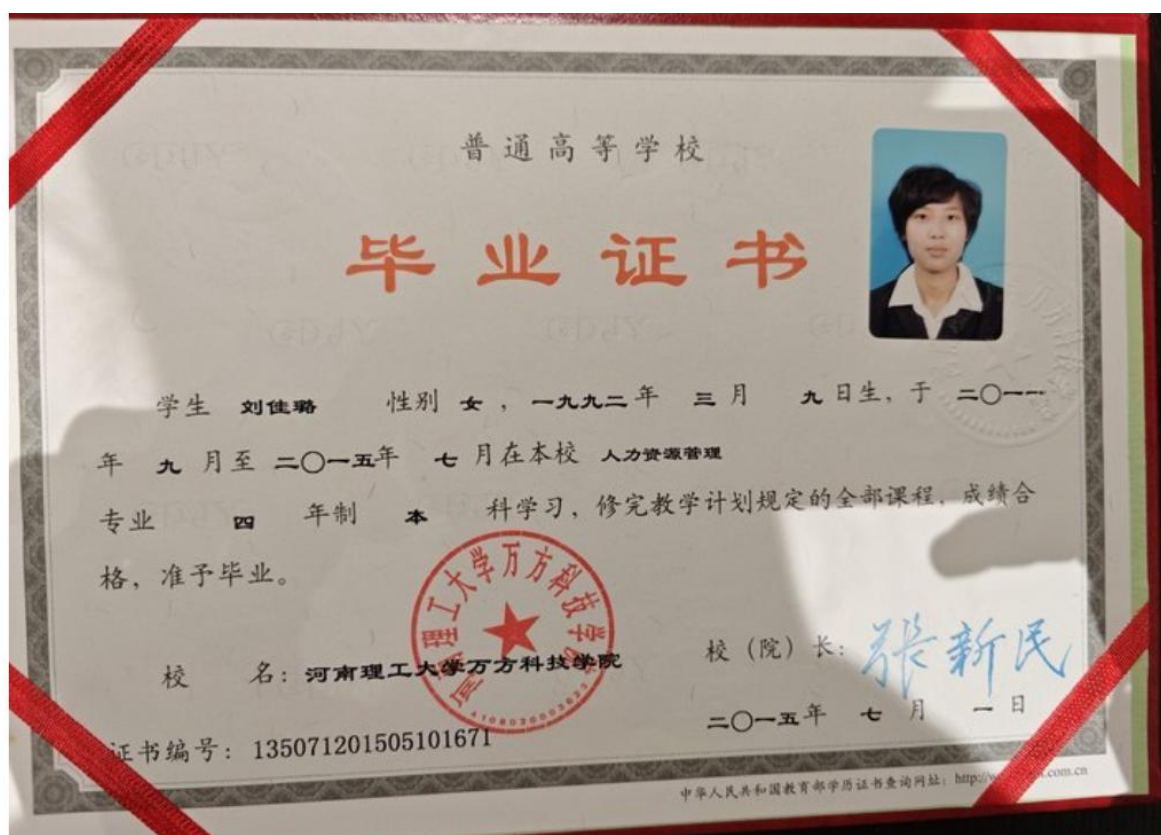 普通高等学校
毕业证书
学生 刘佳璐 性别 女，一九九二年 三月 九日生，于 二〇一一
年 九 月至 二〇一五年 七 月在本校 人力资源管理
专业 四 年制 本 科学习，修完教学计划规定的全部课程，成绩合
格，准予毕业。
校 名：河南理工大学万方科技学院
校（院）长：张新民
二〇一五年 七 月 一 日
证书编号：135071201505101671
中华人民共和国教育部学历证书查询网址：http://w
河南理工大学万方科技学院